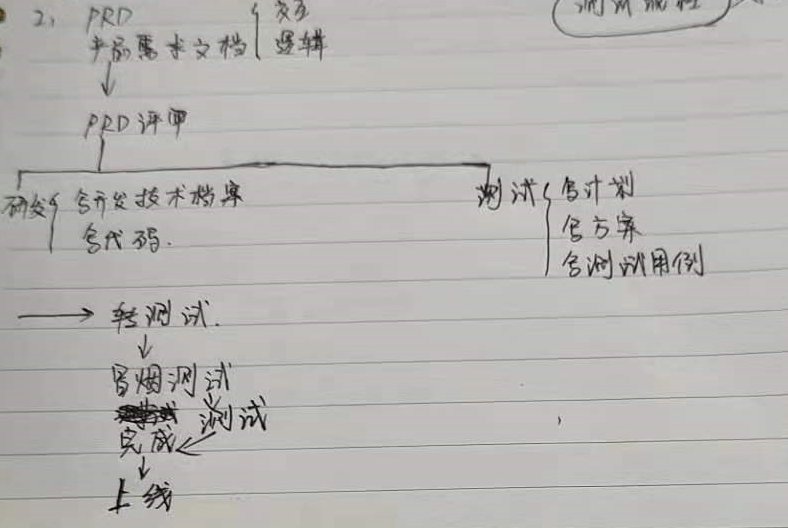 2, PRD { 交互
产品需求文档 { 逻辑
测试流程
PRD评审
研发 { 写开发技术档案
写代码.
测试 { 写计划
写方案
写测试用例
转测试.
冒烟测试
测试
完成
上线